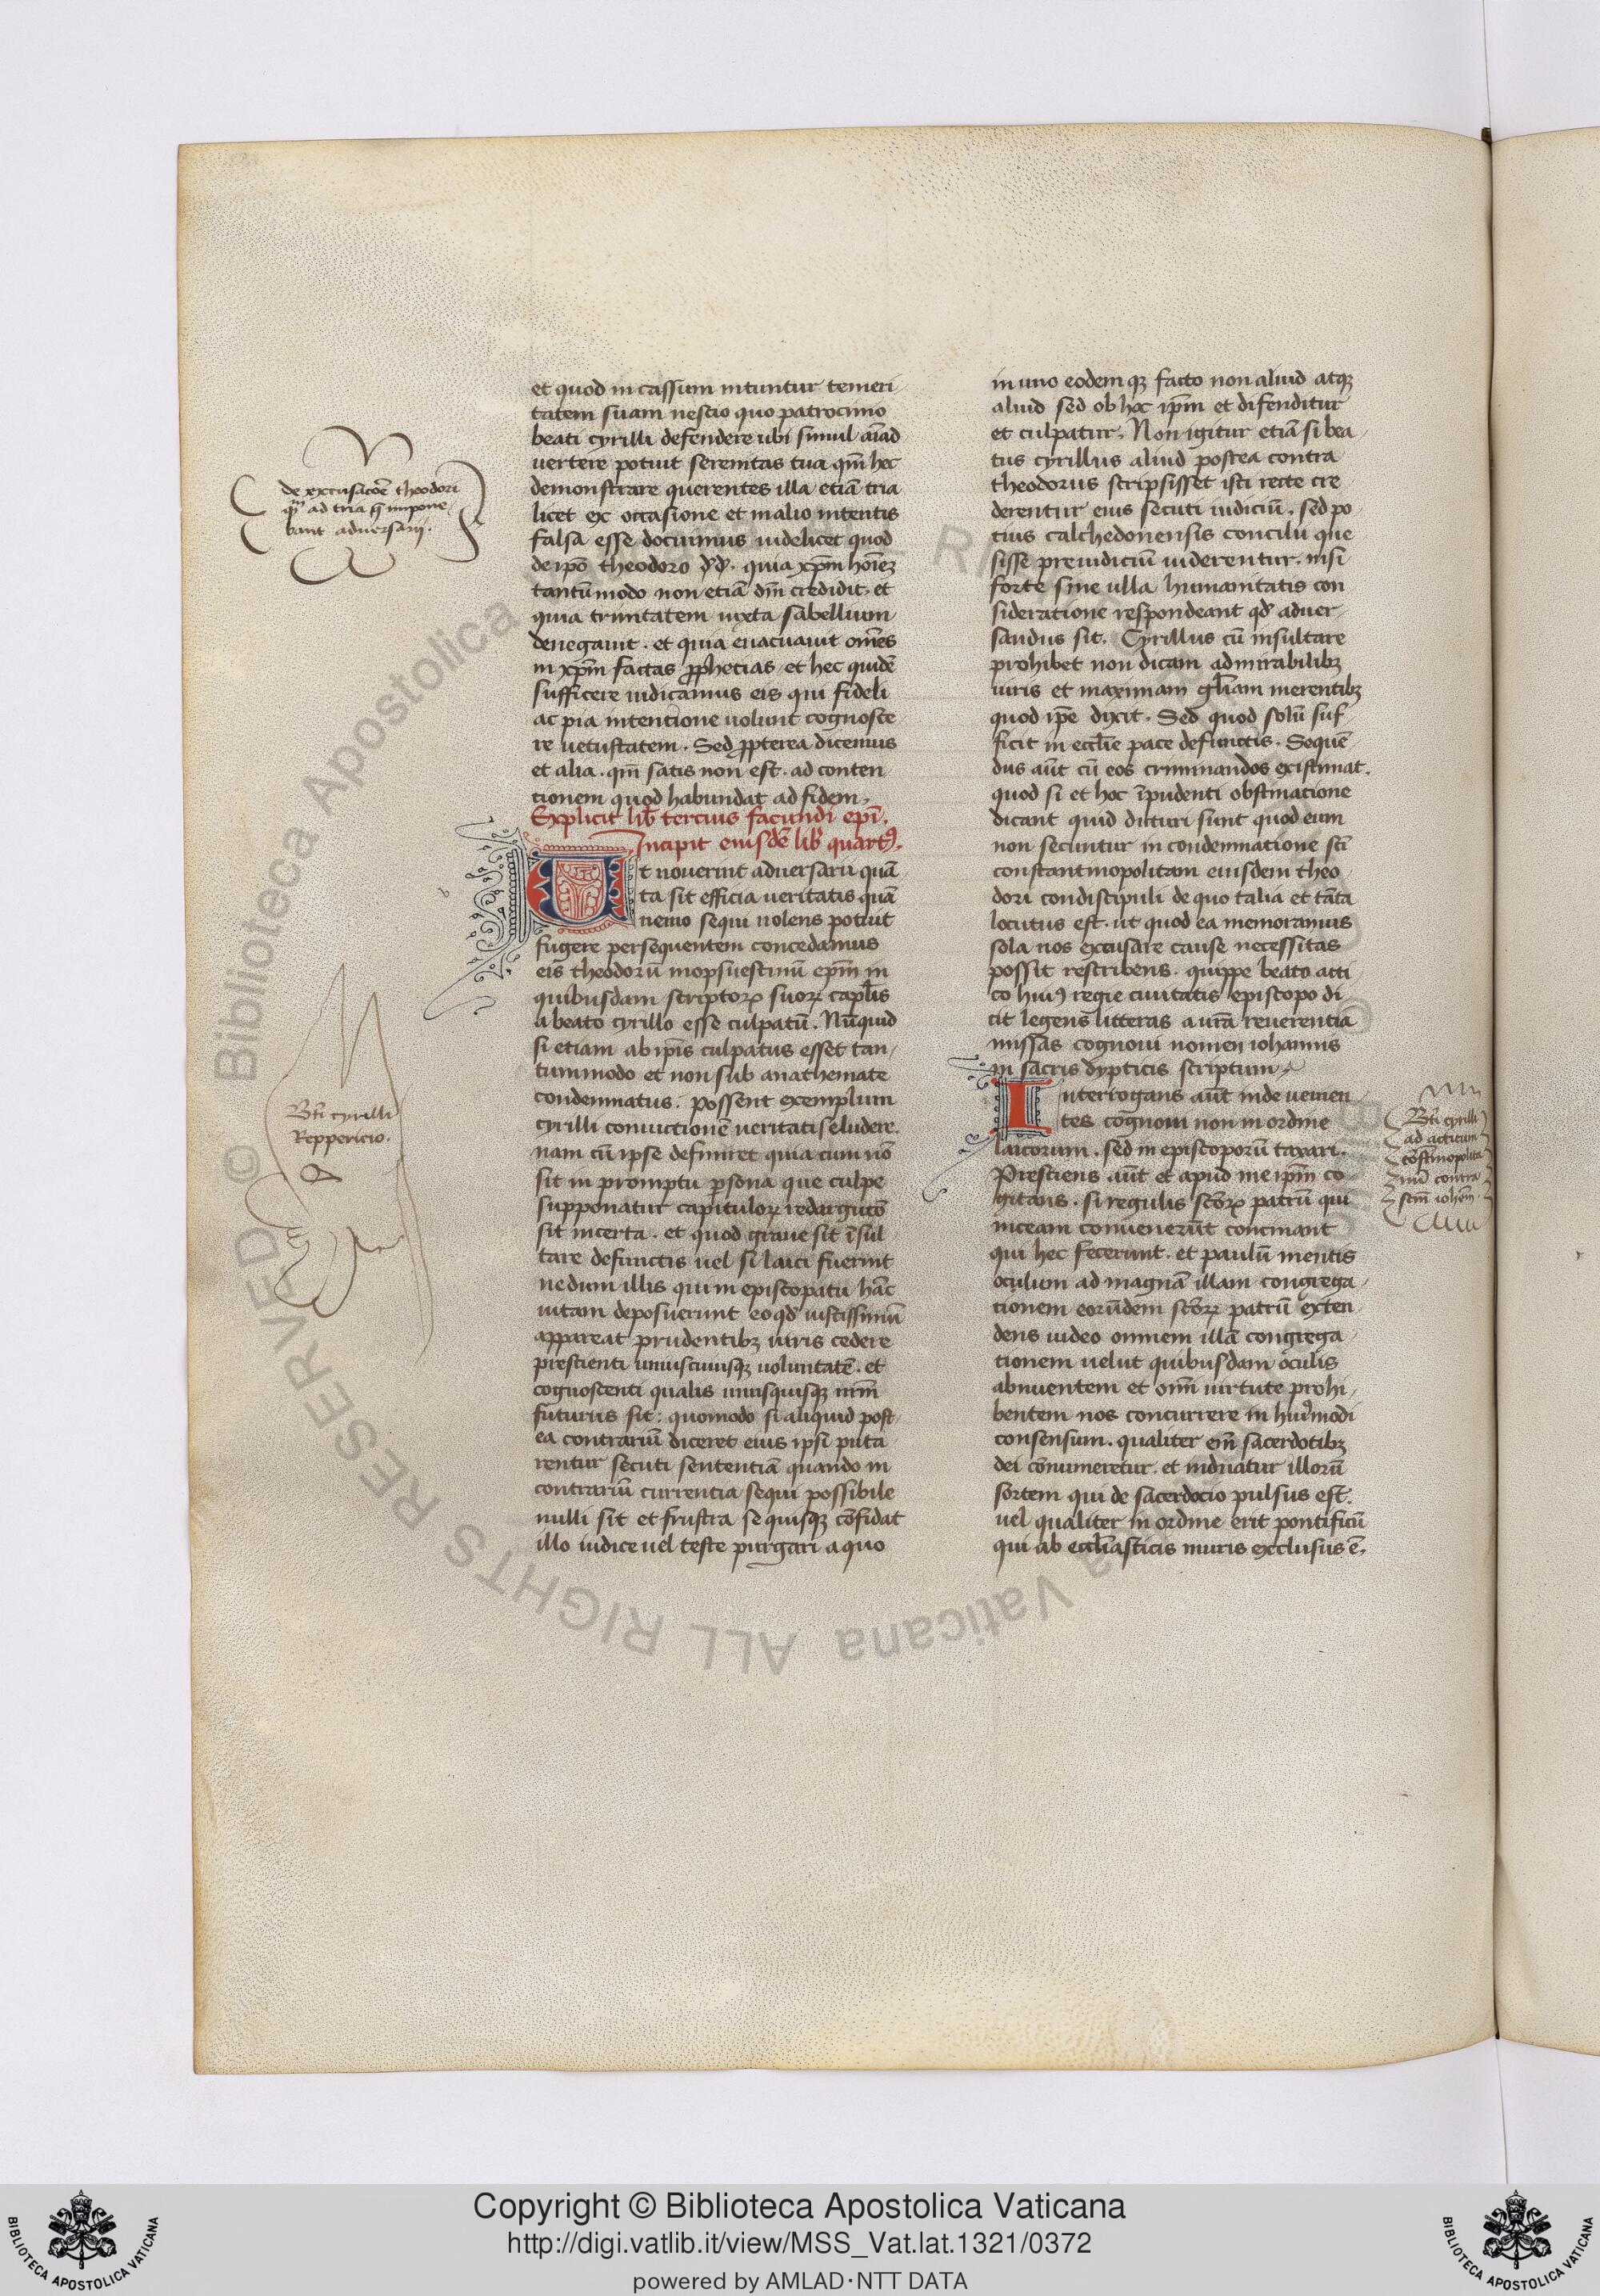 et quod in cassum nituntur temeri
tatem suam nescio quo patrocinio
beati cyrilli defendere ubi simul aīad
uertere potuit serenitas tua qm̄ hec
demonstrare querentes illa etiā tria
licet ex occasione et malio intentis
falsa esse docuimus uidelicet quod
de ipō theodoro d̄r. quia xp̄m hoīez
tantūmodo non etiā dm̄ credidit. et
quia trinitatem iuxta sabellium
denegauit. et quia euacuauit om̄es
in xp̄m factas ꝓphecias et hec quidē
sufficere iudicamus eis qui fideli
ac pia intentione uolunt cognosce
re uetustatem. Sed ꝓpterea dicemus
et alia. qm̄ satis non est. ad conten
tionem quod habundat ad fidem.
Explicit lib̄ tercius facundi ep̄i.
Incipit eiusdē lib̄ quartꝰ.
Ut nouerint aduersarii quā
ta sit efficia ueritatis quā
nemo sequi nolens potuit
fugere persequentem concedamus
eis theodorū mopsuestinū ep̄m in
quibusdam scriptoꝝ suoꝝ capl̄is
a beato cyrillo esse culpatū. Nūquid
si etiam ab ip̄is culpatus esset tan
tummodo et non sub anathemate
condemnatus. possent exemplum
cyrilli conuictionē ueritati eludere.
nam cū ipse definiret quia cum nō
sit in promptu ꝑsona que culpe
supponatur capituloꝝ redargutō
sit incerta. et quod graue sit īsul
tare defunctis uel si laici fuerint
nedum illis qui in episcopatu hāc
uitam deposuerunt eo qd̓ iustissimū
appareat prudentibꝫ iuris cedere
prescienti uniuscuiusqꝫ uoluntatē. et
cognoscenti qualis unusquisqꝫ nrm̄
futurus sit: quomodo si aliquid post
ea contrariū diceret eius ipsi puta
rentur secuti sententiā quando in
contrariū currentia sequi possibile
nulli sit et frustra se quisqꝫ cōfidat
illo iudice uel teste purgari a quo
in uno eodemqꝫ facto non aliud atqꝫ
aliud sed ob hoc ip̄m et difenditur
et culpatur. Non igitur etiā si bea
tus cyrillus aliud postea contra
theodorus scripsisset isti recte cre
derentur eius secuti iudiciū. sed po
tius calchedonensis concilii que
sisse preiudiciū uiderentur. nisi
forte sine ulla humanitatis con
sideratione respondeant qd̓ aduer
sandus sit. Cyrillus cū insultare
prohibet non dicam admirabilibꝫ
uiris et maximam gl̄iam merentibꝫ
quod ip̄e dixit. Sed quod solū suf
ficit in eccl̄ie pace defunctis. Sequē
dus aūt cū eos criminandos existimat.
quod si et hoc īpudenti obstinatione
dicant quid dicturi sunt quod eum
non secuntur in condemnatione sc̄i
constantinopolitam eiusdem theo
dori condiscipuli de quo talia et tāta
locutus est. ut quod ea memoramus
sola nos excusare cause necessitas
possit rescribens. quippe beato atti
co huiꝰ regie ciuitatis episcopo di
cit legens litteras a ur̄a reuerentia
missas cognoui nomen iohannis
in sacris dypticis scriptum.
Interrogans aūt inde uenien
tes cognoui non in ordine
laicorum. sed in episcoporū taxari.
Presciens aūt et apud me ip̄m co
gitans. si regulis sc̄oꝝ patrū qui
niceam conuenerūt concinant
qui hec fecerunt. et paulū mentis
oculum ad magnā illam congrega
tionem eorūdem sc̄oꝝ patrū exten
dens uideo omnem illā congrega
tionem uelut quibusdam oculis
abnuentem et om̄i uirtute prohi
bentem nos concurrere in huiꝰmodi
consensum. qualiter em̄ sacerdotibꝫ
dei cōnumeretur. et induatur illorū
sortem qui de sacerdocio pulsus est.
uel qualiter in ordine erit pontificū
qui ab eccl̄iasticis muris exclusus ē.
de excusacōe theodori
ad tria q̄ impone
bant aduersarij.
Bt̄i cyrilli
Reppericio.
Bt̄i cyrilli
ad atticum
cōstinopolita
nū contra
sc̄m ioh̄em.
© Biblioteca Apostolica Vaticana ALL RIGHTS RESERVED
Copyright © Biblioteca Apostolica Vaticana
http://digi.vatlib.it/view/MSS_Vat.lat.1321/0372
powered by AMLAD·NTT DATA
BIBLIOTECA APOSTOLICA VATICANA
BIBLIOTECA APOSTOLICA VATICANA